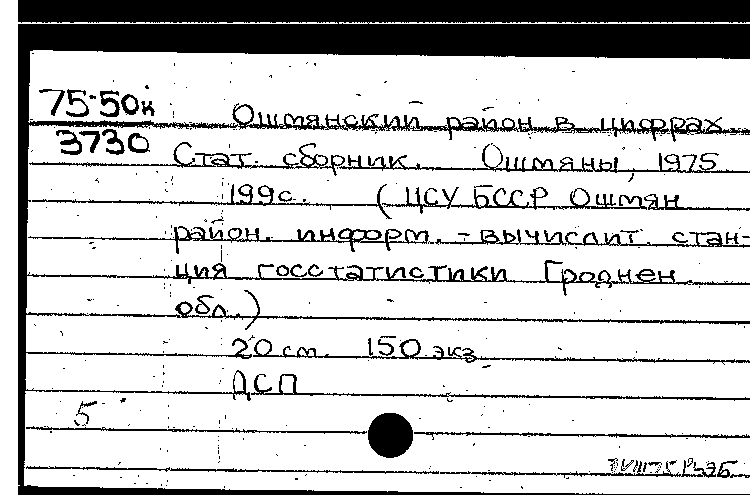 75-50к
3730
Ошмянский район в цифрах
Стат. сборник. Ошмяны, 1975
199с. (ЦСУ БССР Ошмян
район. информ.-вычислит. стан-
ция госстатистики Гроднен.
обл.)
20 см. 150 экз.
ДСП
5